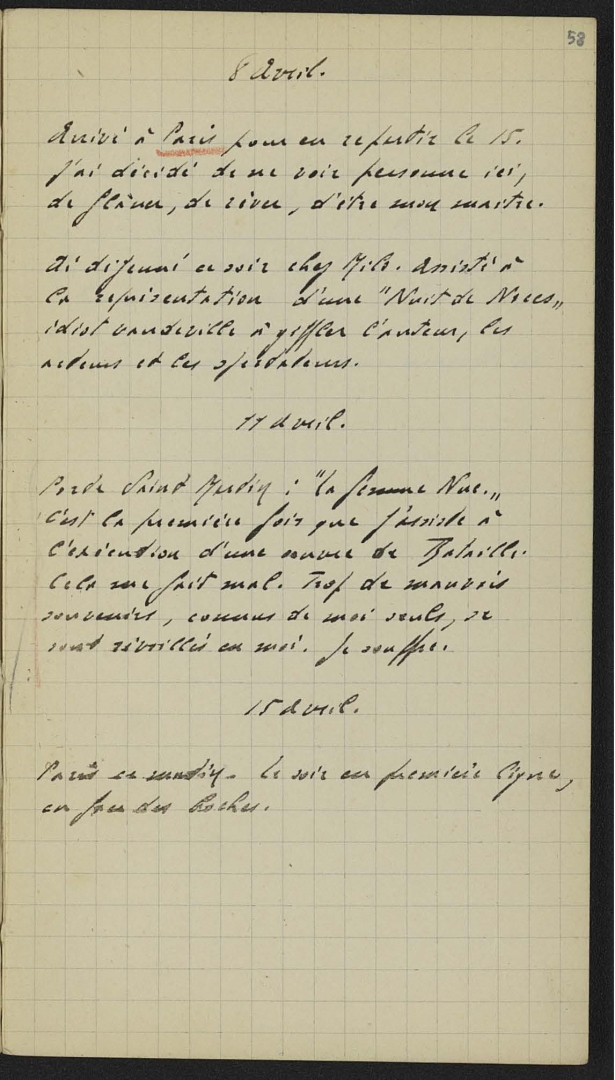 58
8 Avril.
Arrivé à Paris pour en repartir le 15.
J'ai décidé de ne voir personne ici,
de flâner, de rêver, d'être mon maître.
Ai déjeuné ce soir chez Assisté à
la représentation d'une "Nuit de Noces"
idiot vaudeville à giffler l'auteur, les
acteurs et les spectateurs.
11 Avril.
Porte Saint Martin : "la femme Nue."
C'est la première fois que j'assiste à
l'exécution d'une œuvre de Bataille.
Cela me fait mal. Trop de mauvais
souvenirs, connus de moi seuls, se
sont réveillés en moi. Je souffre.
15 Avril.
ce matin. Le soir en première ligne,
en face des Boches.